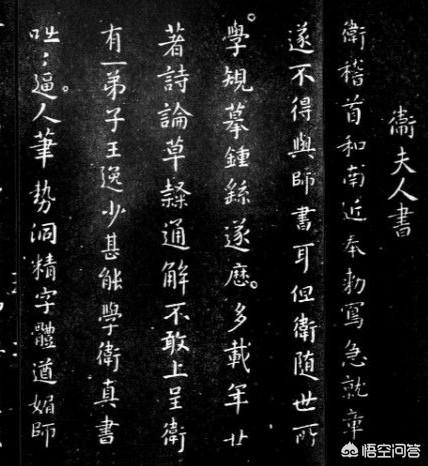 衞夫人書
衞稽首和南近奉勅寫急就章
遂不得與師書耳但衞隨世所
學規摹鍾繇遂歷多載年廿
著詩論草隸通解不敢上呈衞
有一弟子王逸少甚能學衞真書
咄咄逼人筆勢洞精字體遒媚師
悟空问答